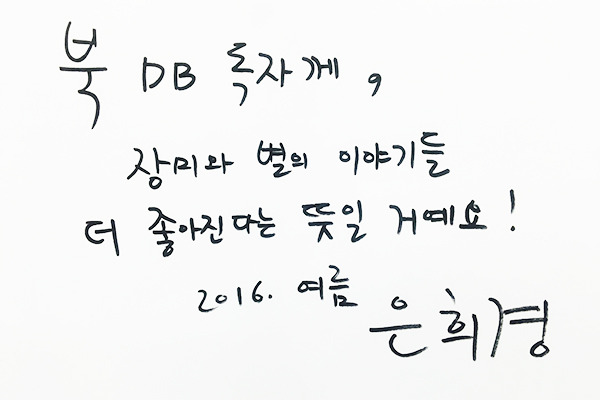 북 DB 독자께,
장미와 별의 이야기들
더 좋아진다는 뜻일 거예요!
2016. 여름
은희경